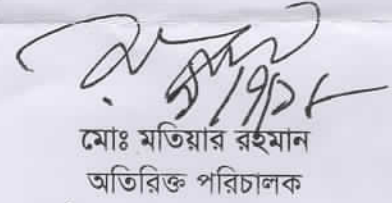 মোঃ মতিয়ার রহমান
অতিরিক্ত পরিচালক